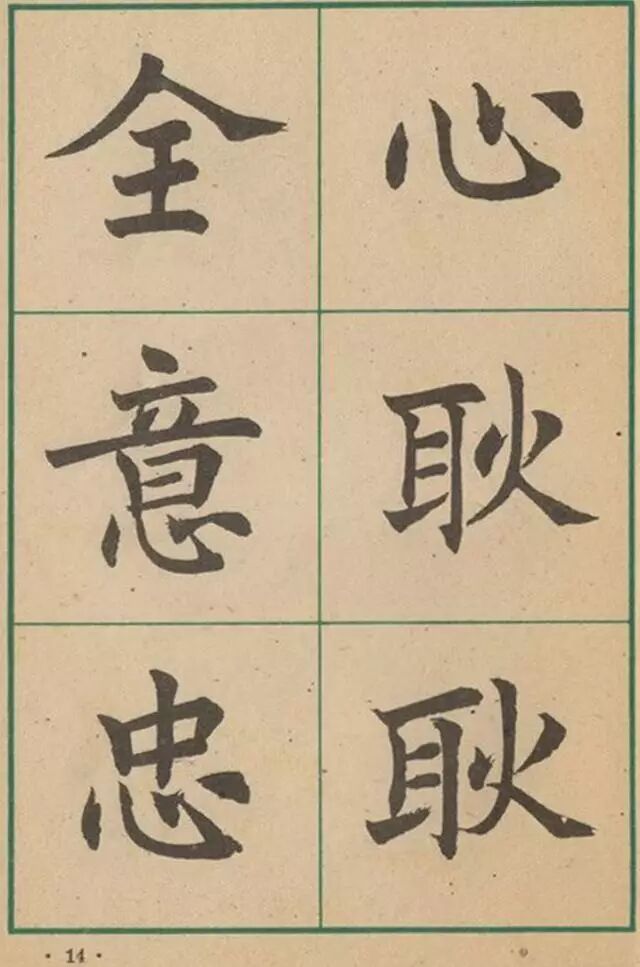 全意忠
心耿耿
· 14 ·